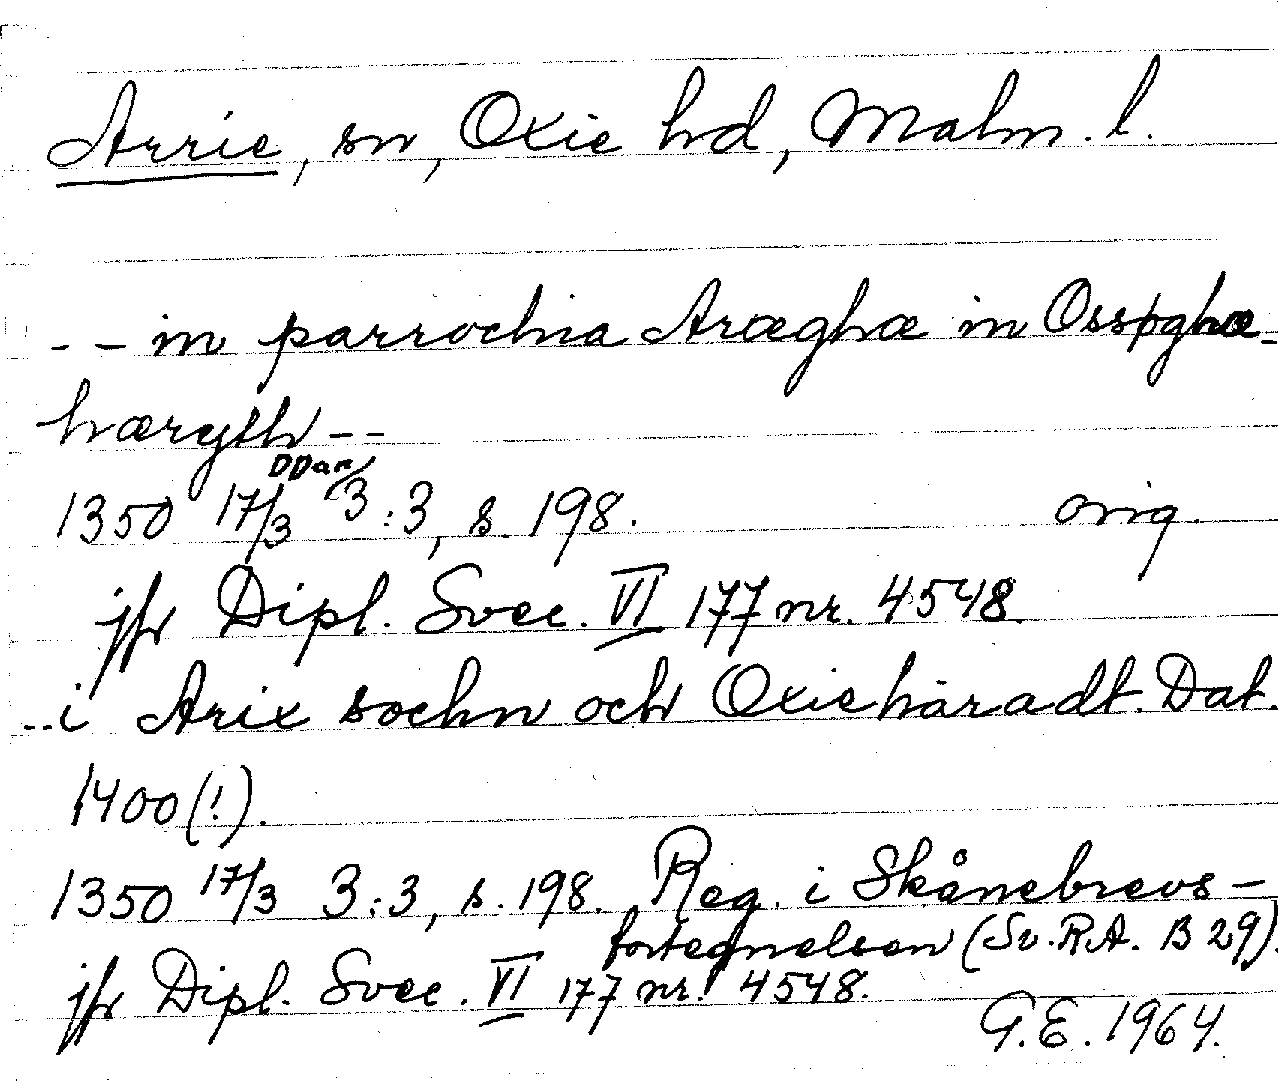 Arrie, sn, Oxie hd, Malm. l.
-- in parrochia Aræghæ in Ossyghæ-
hæryth --
DDan
1350 17/3 3:3, s. 198. orig.
jfr Dipl. Svec. VI 177 nr. 4548.
--i Arix sochn och Oxiehäradt. Dat.
1400(!).
1350 17/3 3:3, s. 198. Reg. i Skånebrevs-
fortegnelsen (Sv. R.A. B 29).
jfr Dipl. Svec. VI 177 nr. 4548.
G.E. 1964.